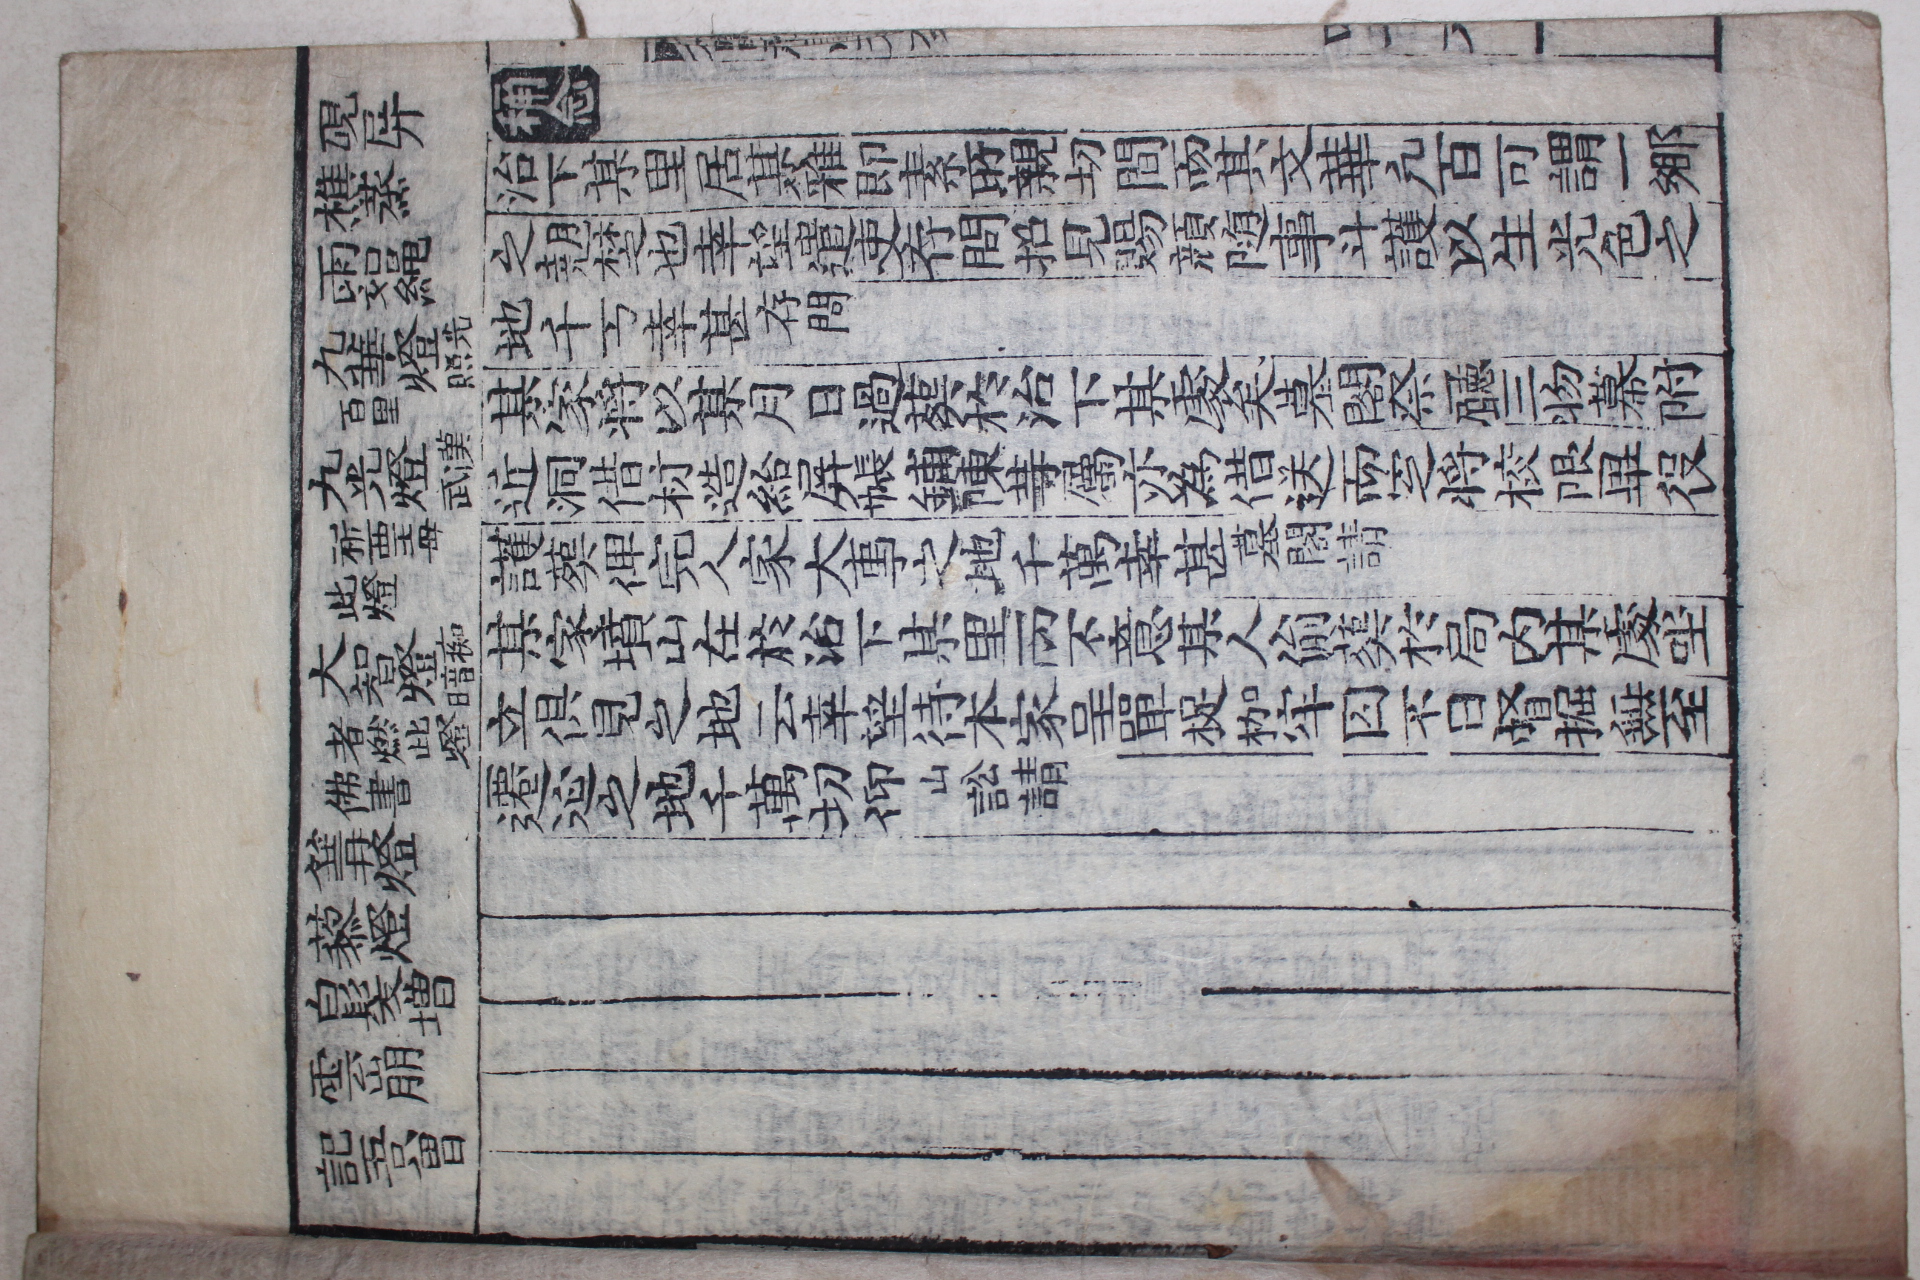 硯屛
樵蒸
雨如繩
九華燈光照
百里
九光燈漢武
祈西王母
此燈
大智燈痴暗
者燃此燈
佛書
篝燈
藜燈
白髮增
雲崩
記吾曾
稱念
治下某里居某雅即素所親切間而其文華凢百可謂一鄕
之翹楚也幸望遣吏存問招見賜顔随事斗護以生光色之
地千万幸甚存問
某家將以某月日過葬於治下某處矣墓閣祭廳三物幕附
近洞借材造給屛帳鋪陳等屬亦為借送而定將校限畢役
護葬俾完人家大事之地千萬幸甚墓閣請
某家墳山在於治下某里而不意某人偷葬於局内某處坐
立俱見之地云幸望待本家呈單捉枷牢囚不日督掘無至
遷延之地千萬切仰山訟請